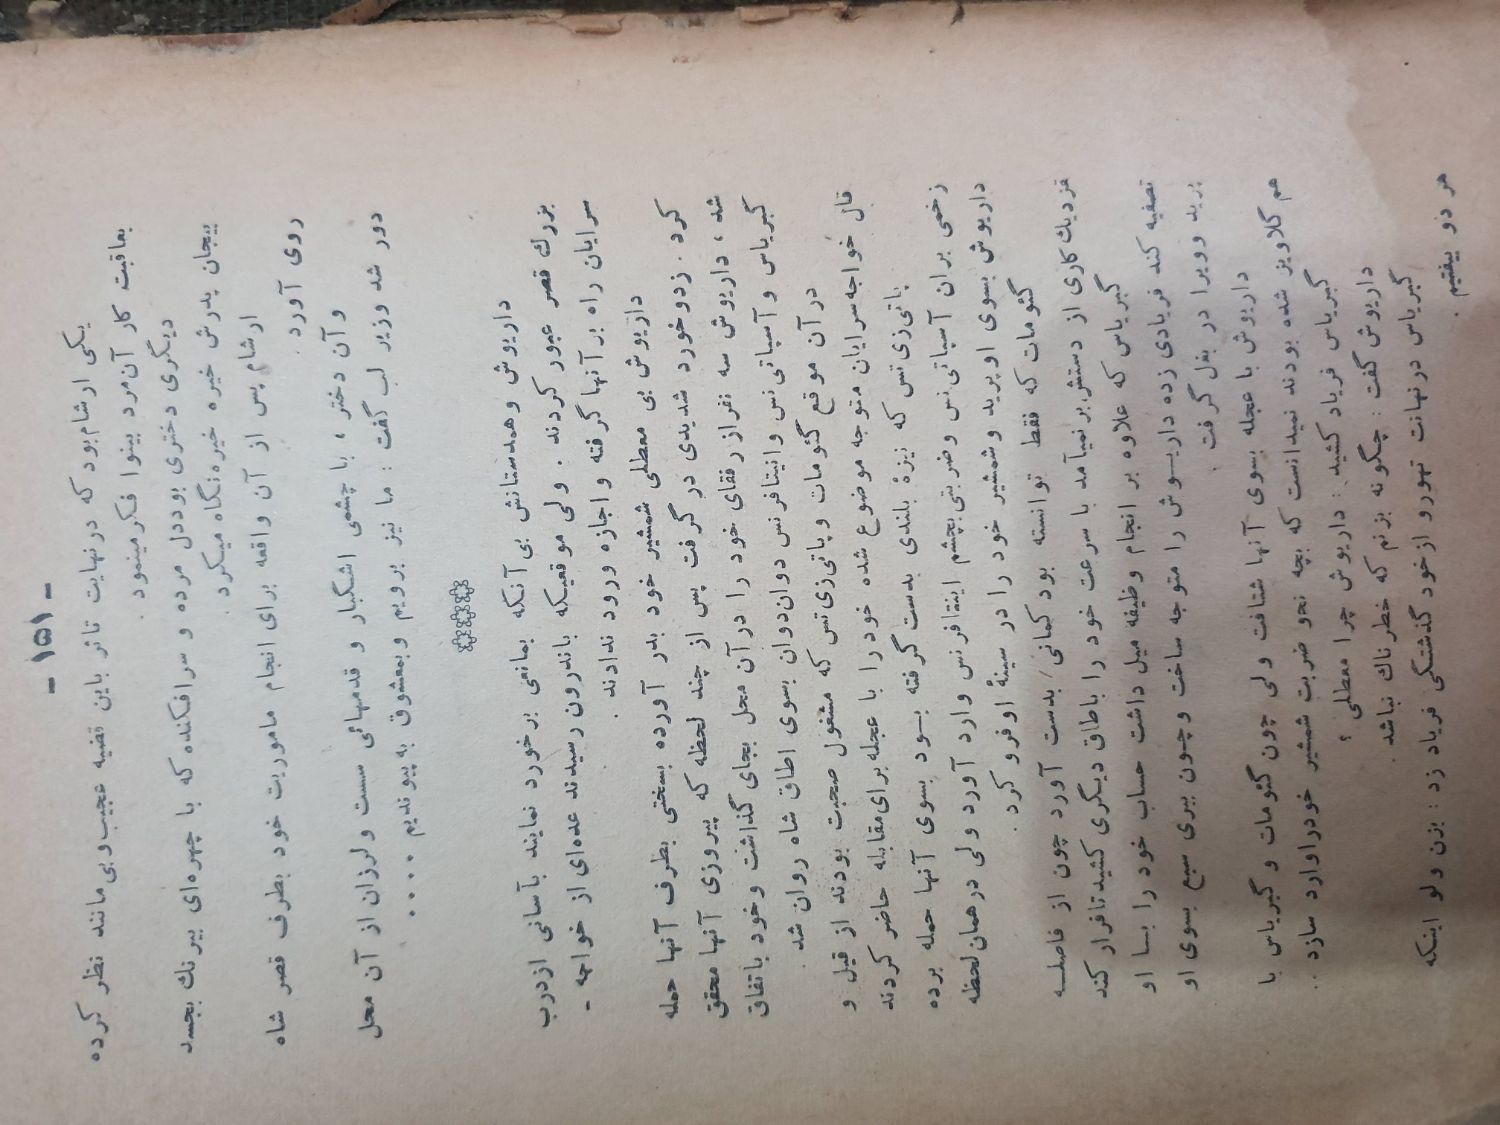 - ۱۵۱ -
یکی ارشام بود که درنهایت تاثر باین قضیه عجیب وبی مانند نظر کرده
بعاقبت کار آن مرد بینوا فکرمینمود .
دیگری دختری بوددل مرده و سرافکنده که با چهره‌ای بیرنك بجسد
بیجان پدرش خیره خیره نگاه میکرد .
ارشام پس از آن واقعه برای انجام ماموریت خود بطرف قصر شاه
روی آورد .
و آن دختر ، با چشمی اشکبار و قدمهائی سست ولرزان از آن محل
دور شد وزیر لب گفت : ما نیز برویم و بمعشوق به پیوندیم ....
داریوش وهمدستانش بی آنکه بمانعی برخورد نمایند بآسانی ازدرب
بزرك قصر عبور کردند . ولی موقعیکه باندرون رسیدند عده‌ای از خواجه -
سرایان راه بر آنها گرفته واجازه ورود ندادند .
داریوش بی معطلی شمشیر خود بدر آورده بسختی بطرف آنها حمله
کرد . زدوخورد شدیدی در گرفت پس از چند لحظه که پیروزی آنها محقق
شد ، داریوش سه نفراز رفقای خود را درآن محل بجای گذاشت وخود باتفاق
گبریاس و آسپاتی نس واینتافرنس دوان دوان بسوی اطاق شاه روان شد .
در آن موقع گئومات وپاتی‌زی‌تس که مشغول صحبت بودند از قیل و
قال خواجه سرایان متوجه موضوع شده خودرا با عجله برای مقابله حاضر کردند
پاتی‌زی‌تس که نیزهٔ بلندی بدست گرفته بود بسوی آنها حمله برده
زخمی بران آسپاتی نس وضربتی بچشم اینتافرنس وارد آورد ولی درهمان لحظه
داریوش بسوی اوپرید وشمشیر خود را در سینهٔ اوفرو کرد .
گئومات که فقط توانسته بود کمانی بدست آورد چون از فاصله
نزدیك کاری از دستش برنمیآمد با سرعت خود را باطاق دیگری کشید تافرار کند
گبریاس که علاوه بر انجام وظیفه میل داشت حساب خود را با او
تصفیه کند فریادی زده داریوش را متوجه ساخت وچون ببری سبع بسوی او
پرید وویرا در بغل گرفت .
داریوش با عجله بسوی آنها شتافت ولی چون گئومات و گبریاس با
هم گلاویز شده بودند نمیدانست که بچه نحو ضربت شمشیر خودراوارد سازد .
گبریاس فریاد کشید : داریوش چرا معطلی ؟
داریوش گفت : چگونه بزنم که خطرناك نباشد .
گبریاس درنهایت تهورو ازخود گذشتگی فریاد زد : بزن ولو اینکه
هر دو بیفتیم .